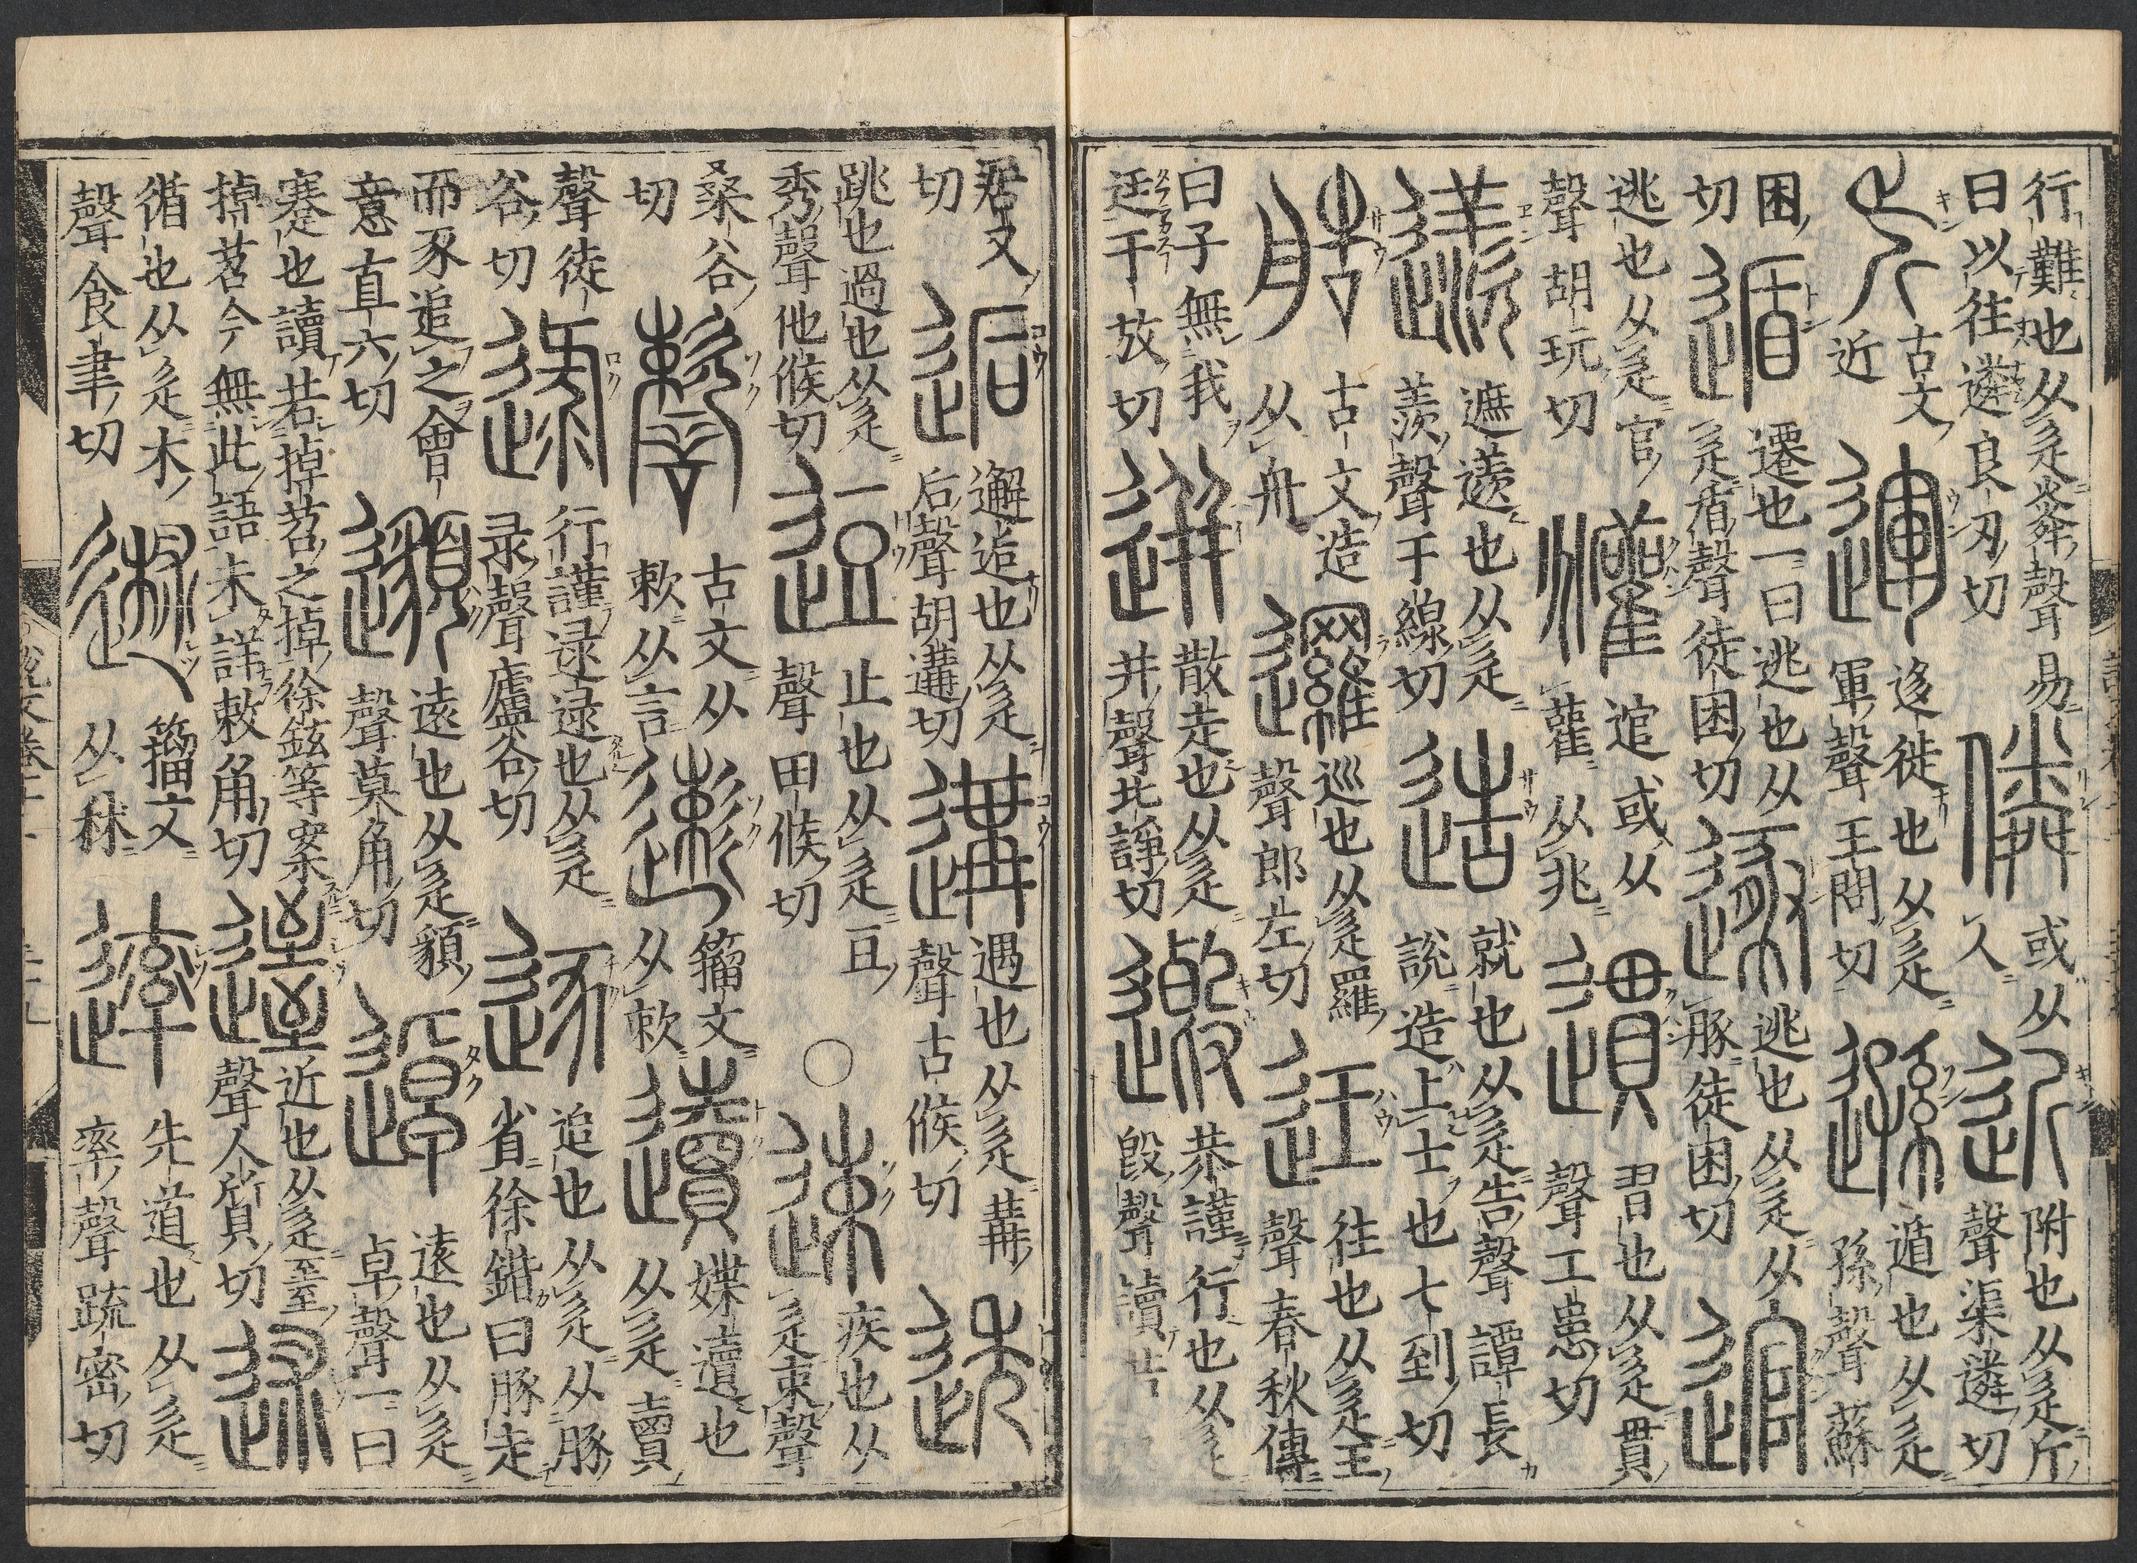 行難也从辵粦聲易
曰以往遴良刃切
僯
或从
人
近
附也从辵斤
聲渠遴切
古文
近
運
迻徙也从辵
軍聲王問切
遜
遁也从辵
孫聲蘇
困
切
遁
遷也一曰逃也从
辵盾聲徒困切
遯
逃也从辵从
豚徒困切
逭
逃也从辵官
聲胡玩切
逭或从
雚从兆
遦
習也从辵貫
聲工患切
遮遾也从辵
羨聲于線切
造
就也从辵告聲譚長
說造上士也七到切
艁
古文造
从舟
邏
巡也从辵羅
聲郎左切
迋
往也从辵王
聲春秋傳
曰子無我
迋于放切
迸
散走也从辵
并聲北諍切
恭謹行也从辵
𣪘聲讀若
居又
切
逅
邂逅也从辵
后聲胡遘切
遘
遇也从辵冓
聲古候切
透
跳也過也从辵
秀聲他候切
逗
止也从辵豆
聲田候切
○
速
疾也从
辵束聲
桑谷
切
古文从
敕从言
籀文
从敕
媟
也
从辵𧶠
聲徒
谷切
逯
行謹逯逯也从辵
录聲盧谷切
逐
追也从辵从豚
省徐鍇曰豚走
而豕追之會
意直六切
邈
遠也从辵䫉
聲莫角切
逴
遠也从辵
卓聲一曰
蹇也讀若掉苕之掉徐鉉等案
掉苕今無此語未詳敕角切
近也从辵臸
聲人質切
述
循也从辵朮
聲食聿切
籀文
从秫
先道也从辵
率聲疏密切